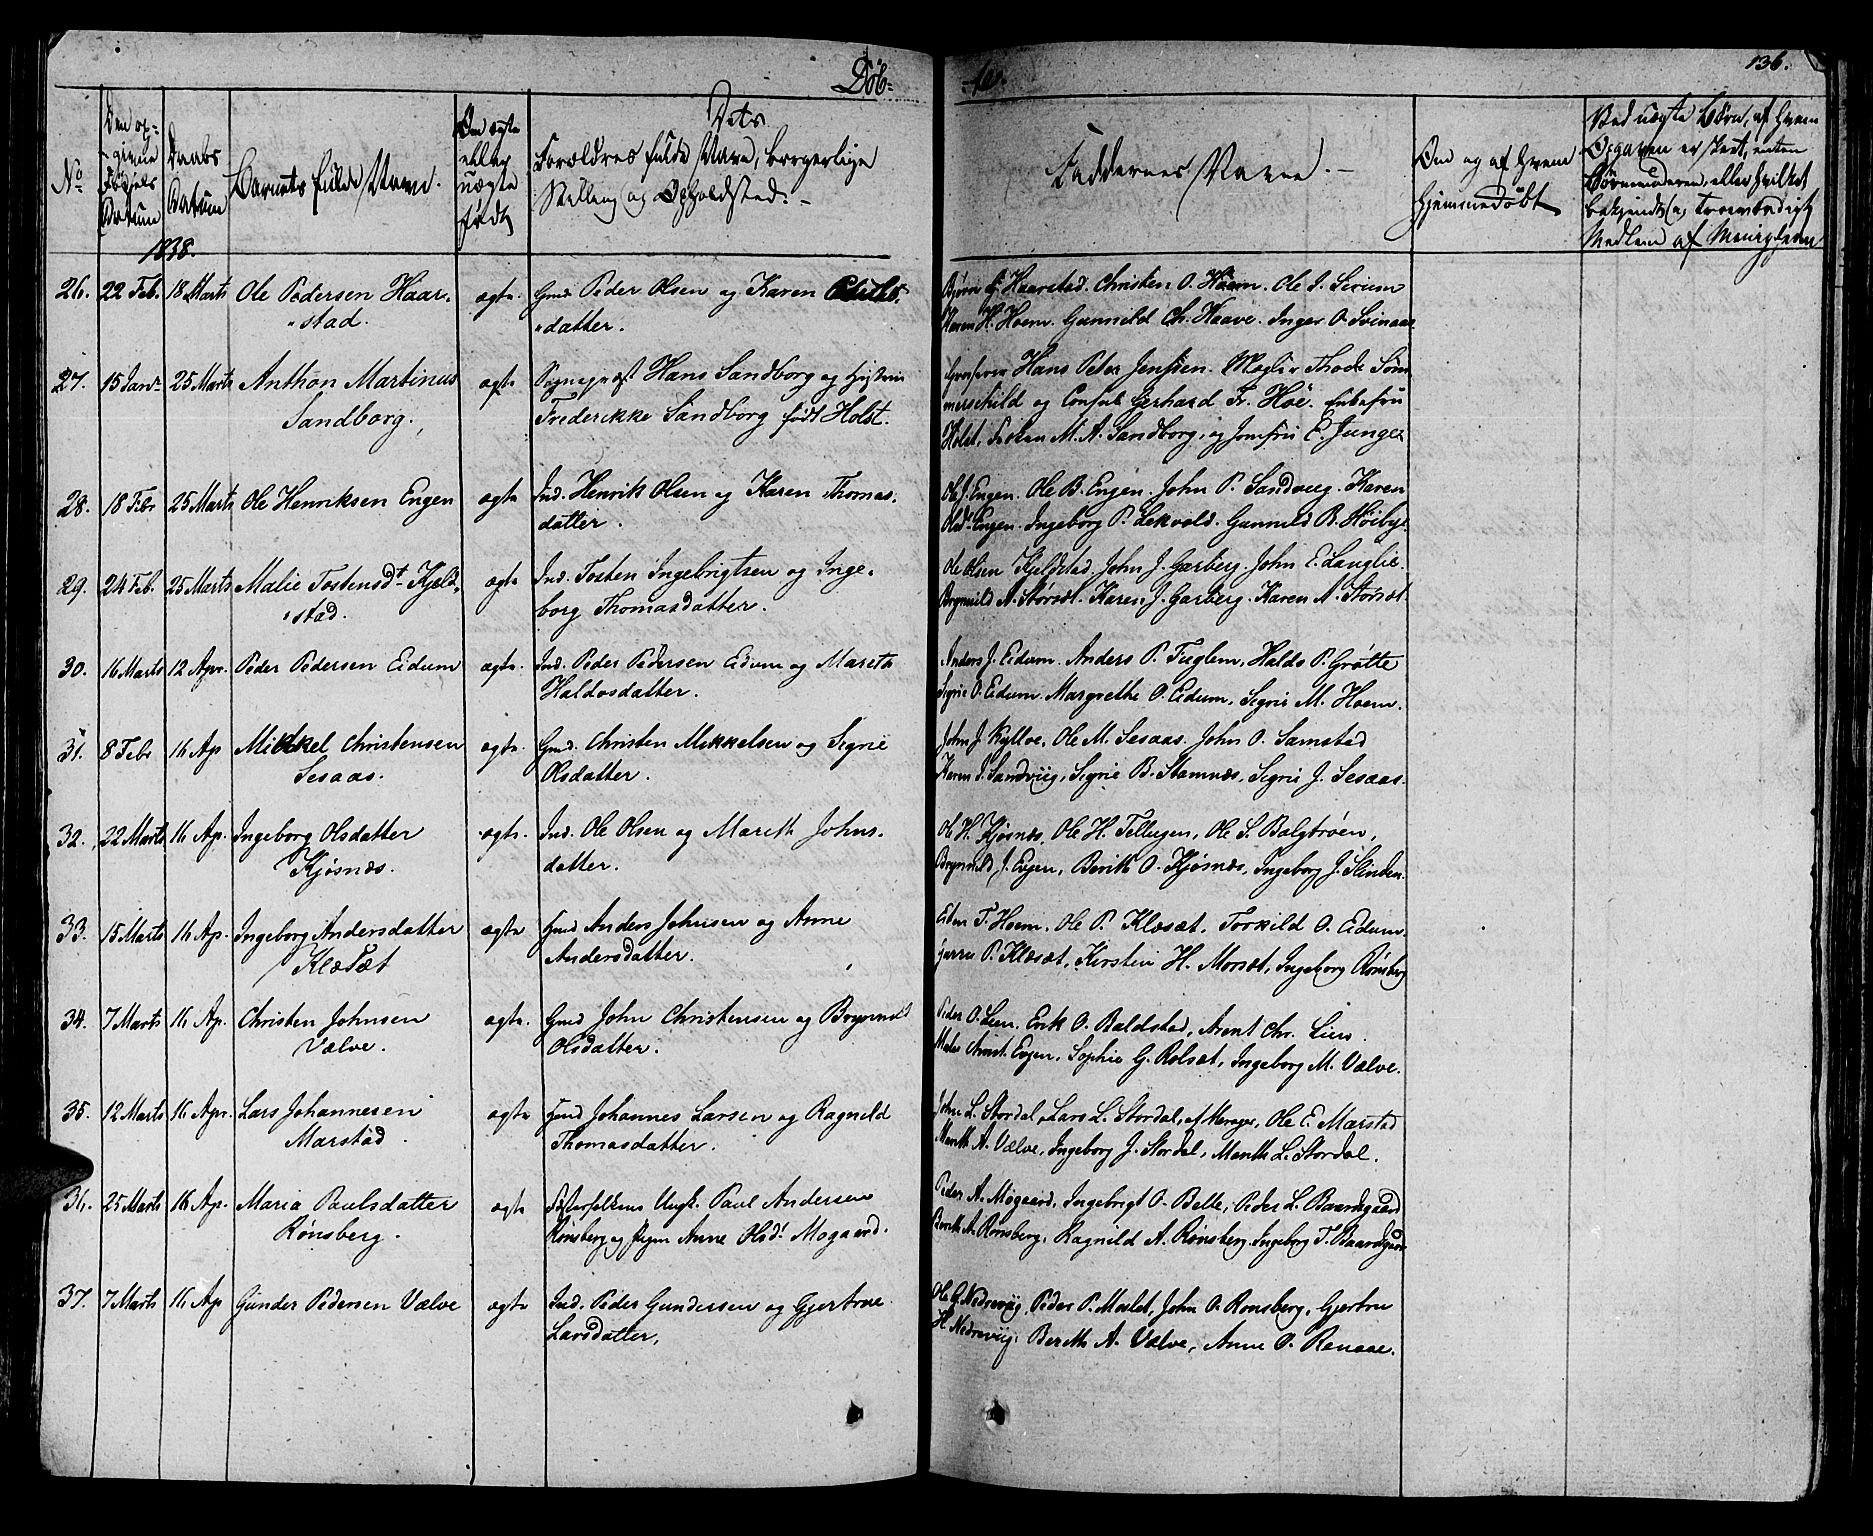 Døb-
-te.
136.
No
Den op-
-givne
Fødsels
Datum
Daabs
Datum
Barnets fulde Navn.
Om ægte
eller
uægte
født
Dets
Forældres fulde Navn, borgerlige
Stilling og Opholdsted.-
Faddernes Navne.-
Om og af hvem
hjemmedøbt
Ved uægte Børn, af hvem
Opgaven er skeet, enten
Børnemoderen, eller hvilket
bekjendt, troeværdigt
Medlem af Menigheden
1838.
26. 22 Feb. 18 Marts Ole Pedersen Haar-
-stad.
ægte. Gmd. Peder Olsen og Karen
-datter.
Haarstad. Christen O. Hoem. Ole
Karen H. Hoem. Gunnild Ch. Haave. Inger O. Svinaas
27. 15 Janr 25 Marts Anthon Martinus
Sandborg.
ægte Sognepræst Hans Sandborg og Hustrue
Frederikke Sandborg født Holst.
Grosserer Hans Peter Jenssen. Mægler Thode Søm-
merschild og Consul Gerhard Fr. Høe. Enkefru
Holst, Frøken M. A. Sandborg, og Jomfru E. Junger
28. 18 Febr 25 Marts Ole Henriksen Engen
ægte Ind. Henrik Olsen og Karen Thomas-
datter.
Ole J. Engen. Ole B. Engen. John P. Sandvig. Karen
Olsd. Engen. Ingeborg P. Lekvold. Gunnild B. Høibye.
29. 24 Feb. 25 Marts Malie Tostensdt Kjeld-
-stad.
ægte Ind. Tosten Ingebrigtsen og Inge-
borg Thomasdatter.
Ole Olsen Kjeldstad. John J. Garberg. John E. Langlie.
Brynnild A. Storsæt. Karen J. Garberg. Karen A. Storsæt.
30. 16 Marts 12 Apr. Peder Pedersen Eidum
ægte. Ind. Peder Pedersen Eidum og Mareth
Haldosdatter.
Anders J. Eidum. Anders P. Fuglem, Haldo P. Grøtte
Sigrie O. Eidum. Margrethe O. Eidum, Sigrie M. Hoem.
31. 8 Febr 16 Ap Mikkel Christensen
Sesaas.
ægte. Gmd. Christen Mikkelsen og Sigrie
Olsdatter.
John J. Kyllve, Ole M. Sesaas. John O. Samstad
Karen J. Sandviig, Sigrie B. Stamnæs, Sigrie J. Sesaas.
32. 22 Marts 16 Ap. Ingeborg Olsdatter
Kjøsnæs.
ægte. Ind. Ole Olsen og Mareth Johns-
datter.
Ole H. Kjøsnæs, Ole H. Tellugen, Ole S. Balgbrøen,
Brynnild J. Evjen, Berith O. Kjøsnæs, Ingeborg J. Slinden.
33. 15 Marts 16 Ap. Ingeborg Andersdatter
Klæsæt
ægte Gmd Anders Johnsen og Anne
Andersdatter.
T. Hoem, Ole P. Klæsæt, Torkild O. Eidum.
P. Klæsæt, Kirsten H. Morsæt, Ingeborg Rønsberg
34. 7 Marts 16 Ap. Christen Johnsen
Vælve.
ægte. Gmd John Christensen og Brynnild
Olsdatter.
Peder O. Lien. Erik O. Baldstad, Arent Chr. Lien.
Evjen, Sophie G. Rolsæt, Ingeborg M. Vælve.
35. 12 Marts 16 Apr. Lars Johannesen
Marstad.
ægte Gmd Johannes Larsen og Ragnild
Thomasdatter.
John L. Stordal, Lars L. Stordal, af Merager, Ole E. Marstad
Mareth A. Vælve, Ingeborg J. Stordal, Mareth L. Stordal.
36. 25 Marts 16 Ap. Maria Paulsdatter
Rønsberg.
ægte Paul Andersen
Rønsberg og Pigen Anne Olsdt Mogaard.
Peder A. Møgaard, Ingebrigt O. Belle, Peder L. Baardsgaard
Berith A. Rønsberg, Ragnild A. Rønsberg. Ingeborg T. Baardsgaard
37. 7 Marts 16 Ap Gunder Pedersen Vælve
ægte Ind. Peder Gundersen og Gjertrue
Larsdatter,
Ole G. Nedreviig, Peder P. Moslet, John O. Rønsberg, Gjertru
H. Nedreviig. Bereth A. Vælve, Anne O. Renaae.